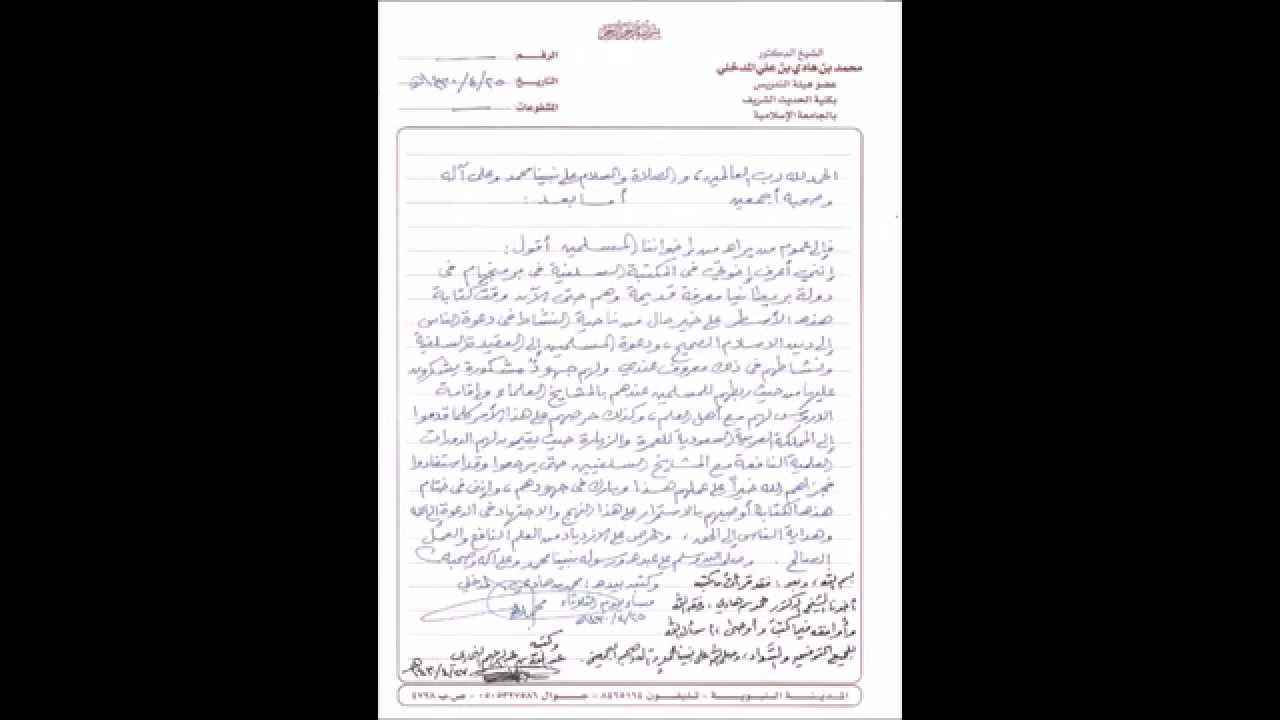 بسم الله الرحمن الرحيم
الشيخ الدكتور
محمد بن هادي بن علي المدخلي
عضو هيئة التدريس
بكلية الحديث الشريف
بالجامعة الإسلامية
الرقم
التاريخ ١٤٣٠/٤/٢٥
المشفوعات
الحمد لله رب العالمين، والصلاة والسلام على نبينا محمد وعلى آله
وصحبه أجمعين أما بعد :
فإلى عموم من يراه من إخواننا المسلمين أقول :
إنني أعرف إخوتي في المكتبة السلفية في برمنجهام في
دولة بريطانيا معرفة قديمة وهم حتى الآن وقت كتابة
هذه الأسطر على خير حال من ناحية النشاط في دعوة الناس
إلى دين الاسلام الصحيح، ودعوة المسلمين إلى العقيدة السلفية
ونشاطهم في ذلك معروف عندي ولهم جهود مشكورة يشكرون
عليها من حيث ربطهم للمسلمين عندهم بالمشايخ العلماء وإقامة
الدروس لهم مع أهل العلم، وكذلك حرصهم على هذا الأمر كلما قدموا
إلى المملكة العربية السعودية للعمرة والزيارة حيث يقيمون لهم الدورات
العلمية النافعة مع المشايخ السلفيين حتى يرجعوا وقد استفادوا
فجزاهم الله خيراً على عملهم هذا وبارك في جهودهم، وإنني في ختام
هذه الكتابة أوصيهم بالاستمرار على هذا النهج والاجتهاد في الدعوة إلى الله
وهداية الناس إلى الحق، والحرص على الازدياد من العلم النافع والعمل
الصالح . وصلى الله وسلم على عبده ورسوله نبينا محمد وعلى آله وصحبه
وكتبه بيده : محمد بن هادي المدخلي
مساء يوم الثلاثاء
١٤٣٠/٤/٢٥
بسم الله، وبعد : فقد قرأت ما كتبه
أخونا الشيخ الدكتور محمد بن هادي، وفقه الله
وأوافقه فيما كتب وأوصى، أسأل الله
للجميع التوفيق والسداد، وصلى الله على نبينا محمد وآله وصحبه أجمعين.
وكتبه
عبد الله بن عبد الرحيم البخاري
المدينة النبوية - تليفون ٨٤٦٥١٦٤ - جوال ٠٥٠٥٣٢٧٥٨٦ - ص ب ٤٧٦٨